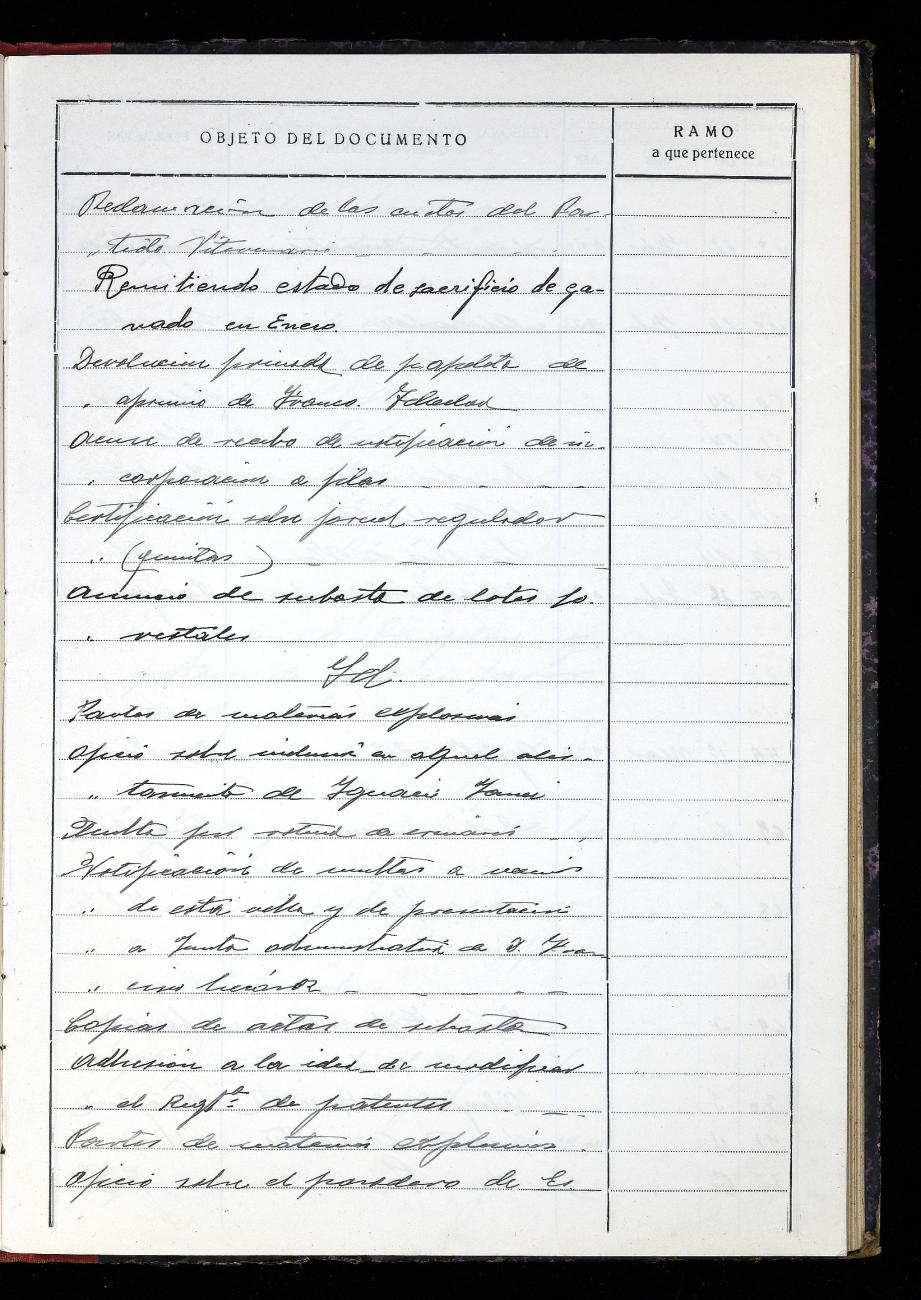 OBJETO DEL DOCUMENTO
RAMO
a que pertenece
Reclamación de las cuotas del Par-
„ tido Veterinario
Remitiendo estado de sacrificio de ga-
nado en Enero.
Devolucion de papeleta de
„ apremio de Franco.
Acuse de recibo de notificación de in-
„ corporacion a filas
Certificación sobre jornal regulador
„ (quintas)
Anuncio de subasta de lotes fo-
„ restales
Id.
Partes de materias explosivas
Oficio sobre en aquel alis-
„ tamiento de Ignacio
Multa por de
Notificación de multas a vecinos
„ de esta villa y de presentación
„ a Junta administrativa de D. Fran
„ cisco
Copias de actas de subasta
Adhesión a la idea de modificar
„ el Regtº de patentes
Partes de materias explosivas
Oficio sobre el paradero de Es